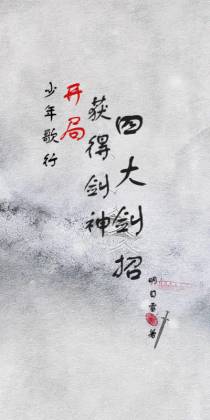 少年歌行
开局
获得剑神
四大剑招
明日雪
著